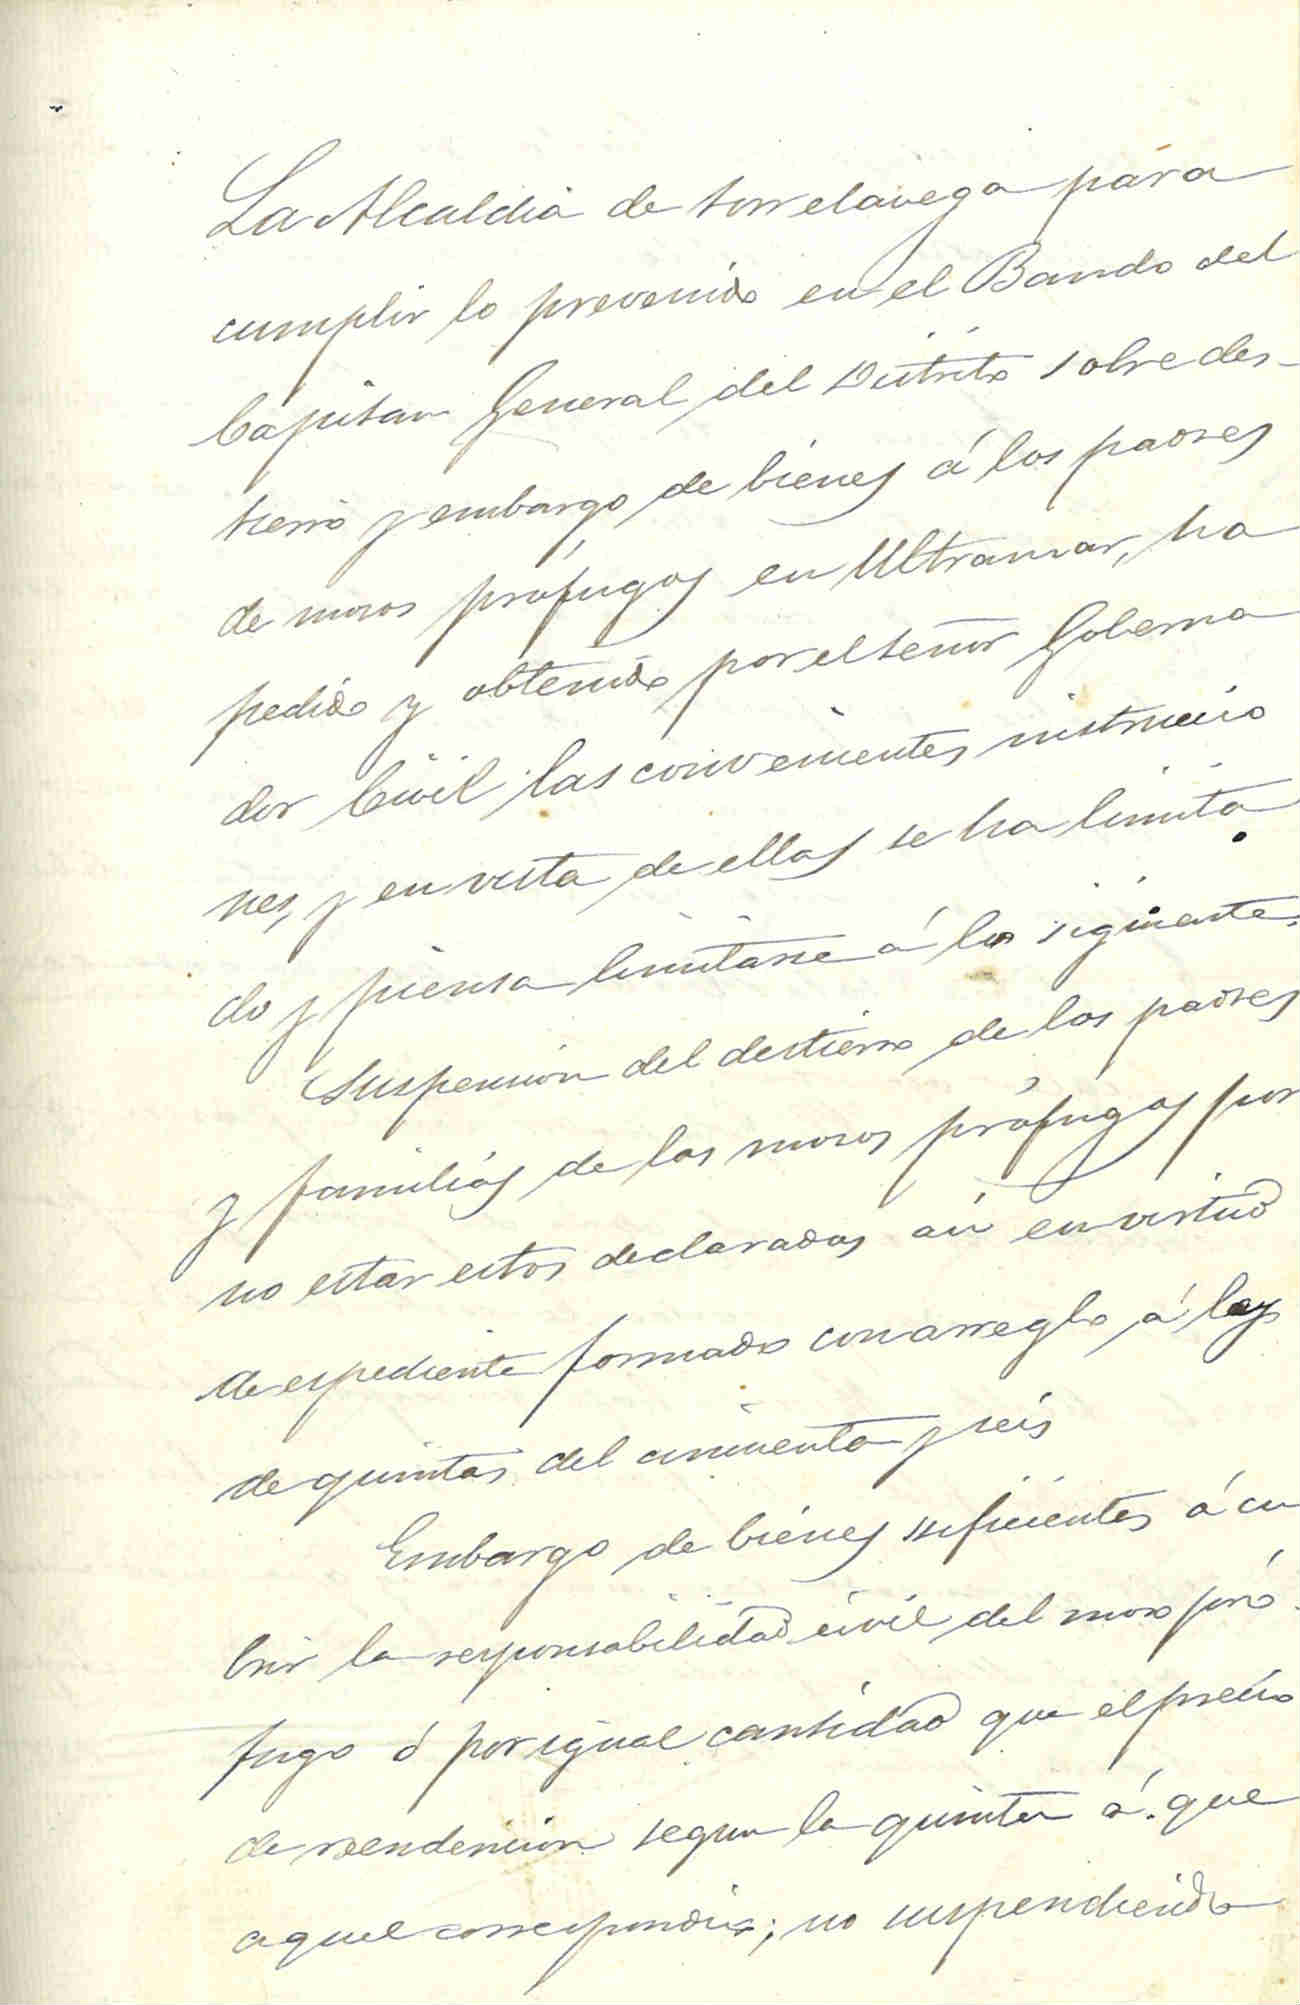 La Alcaldia de torrelavega para
cumplir lo prevenido en el Bando del
Capitan General del Distrito sobre des-
tierro y embargo de bienes á los padres
de mozos prófugos en Ultramar, ha
pedido y obtenido por el señor Goberna
dor Civil las convenientes instruccio
nes, y en vista de ellas se ha limita
do y piensa limitarse á lo siguiente.
Suspension del destierro de los padres
y familias de los mozos prófugos por
no estar estos declarados asi en virtud
de espediente formado con arreglo á ley
de quintas del cincuenta y seis
Embargo de bienes suficientes á cu
brir la responsabilidad civil del mozo pró-
fugo ó por igual cantidad que el precio
de redencion segun la quinta á que
aquel correspondia; no suspendiendo